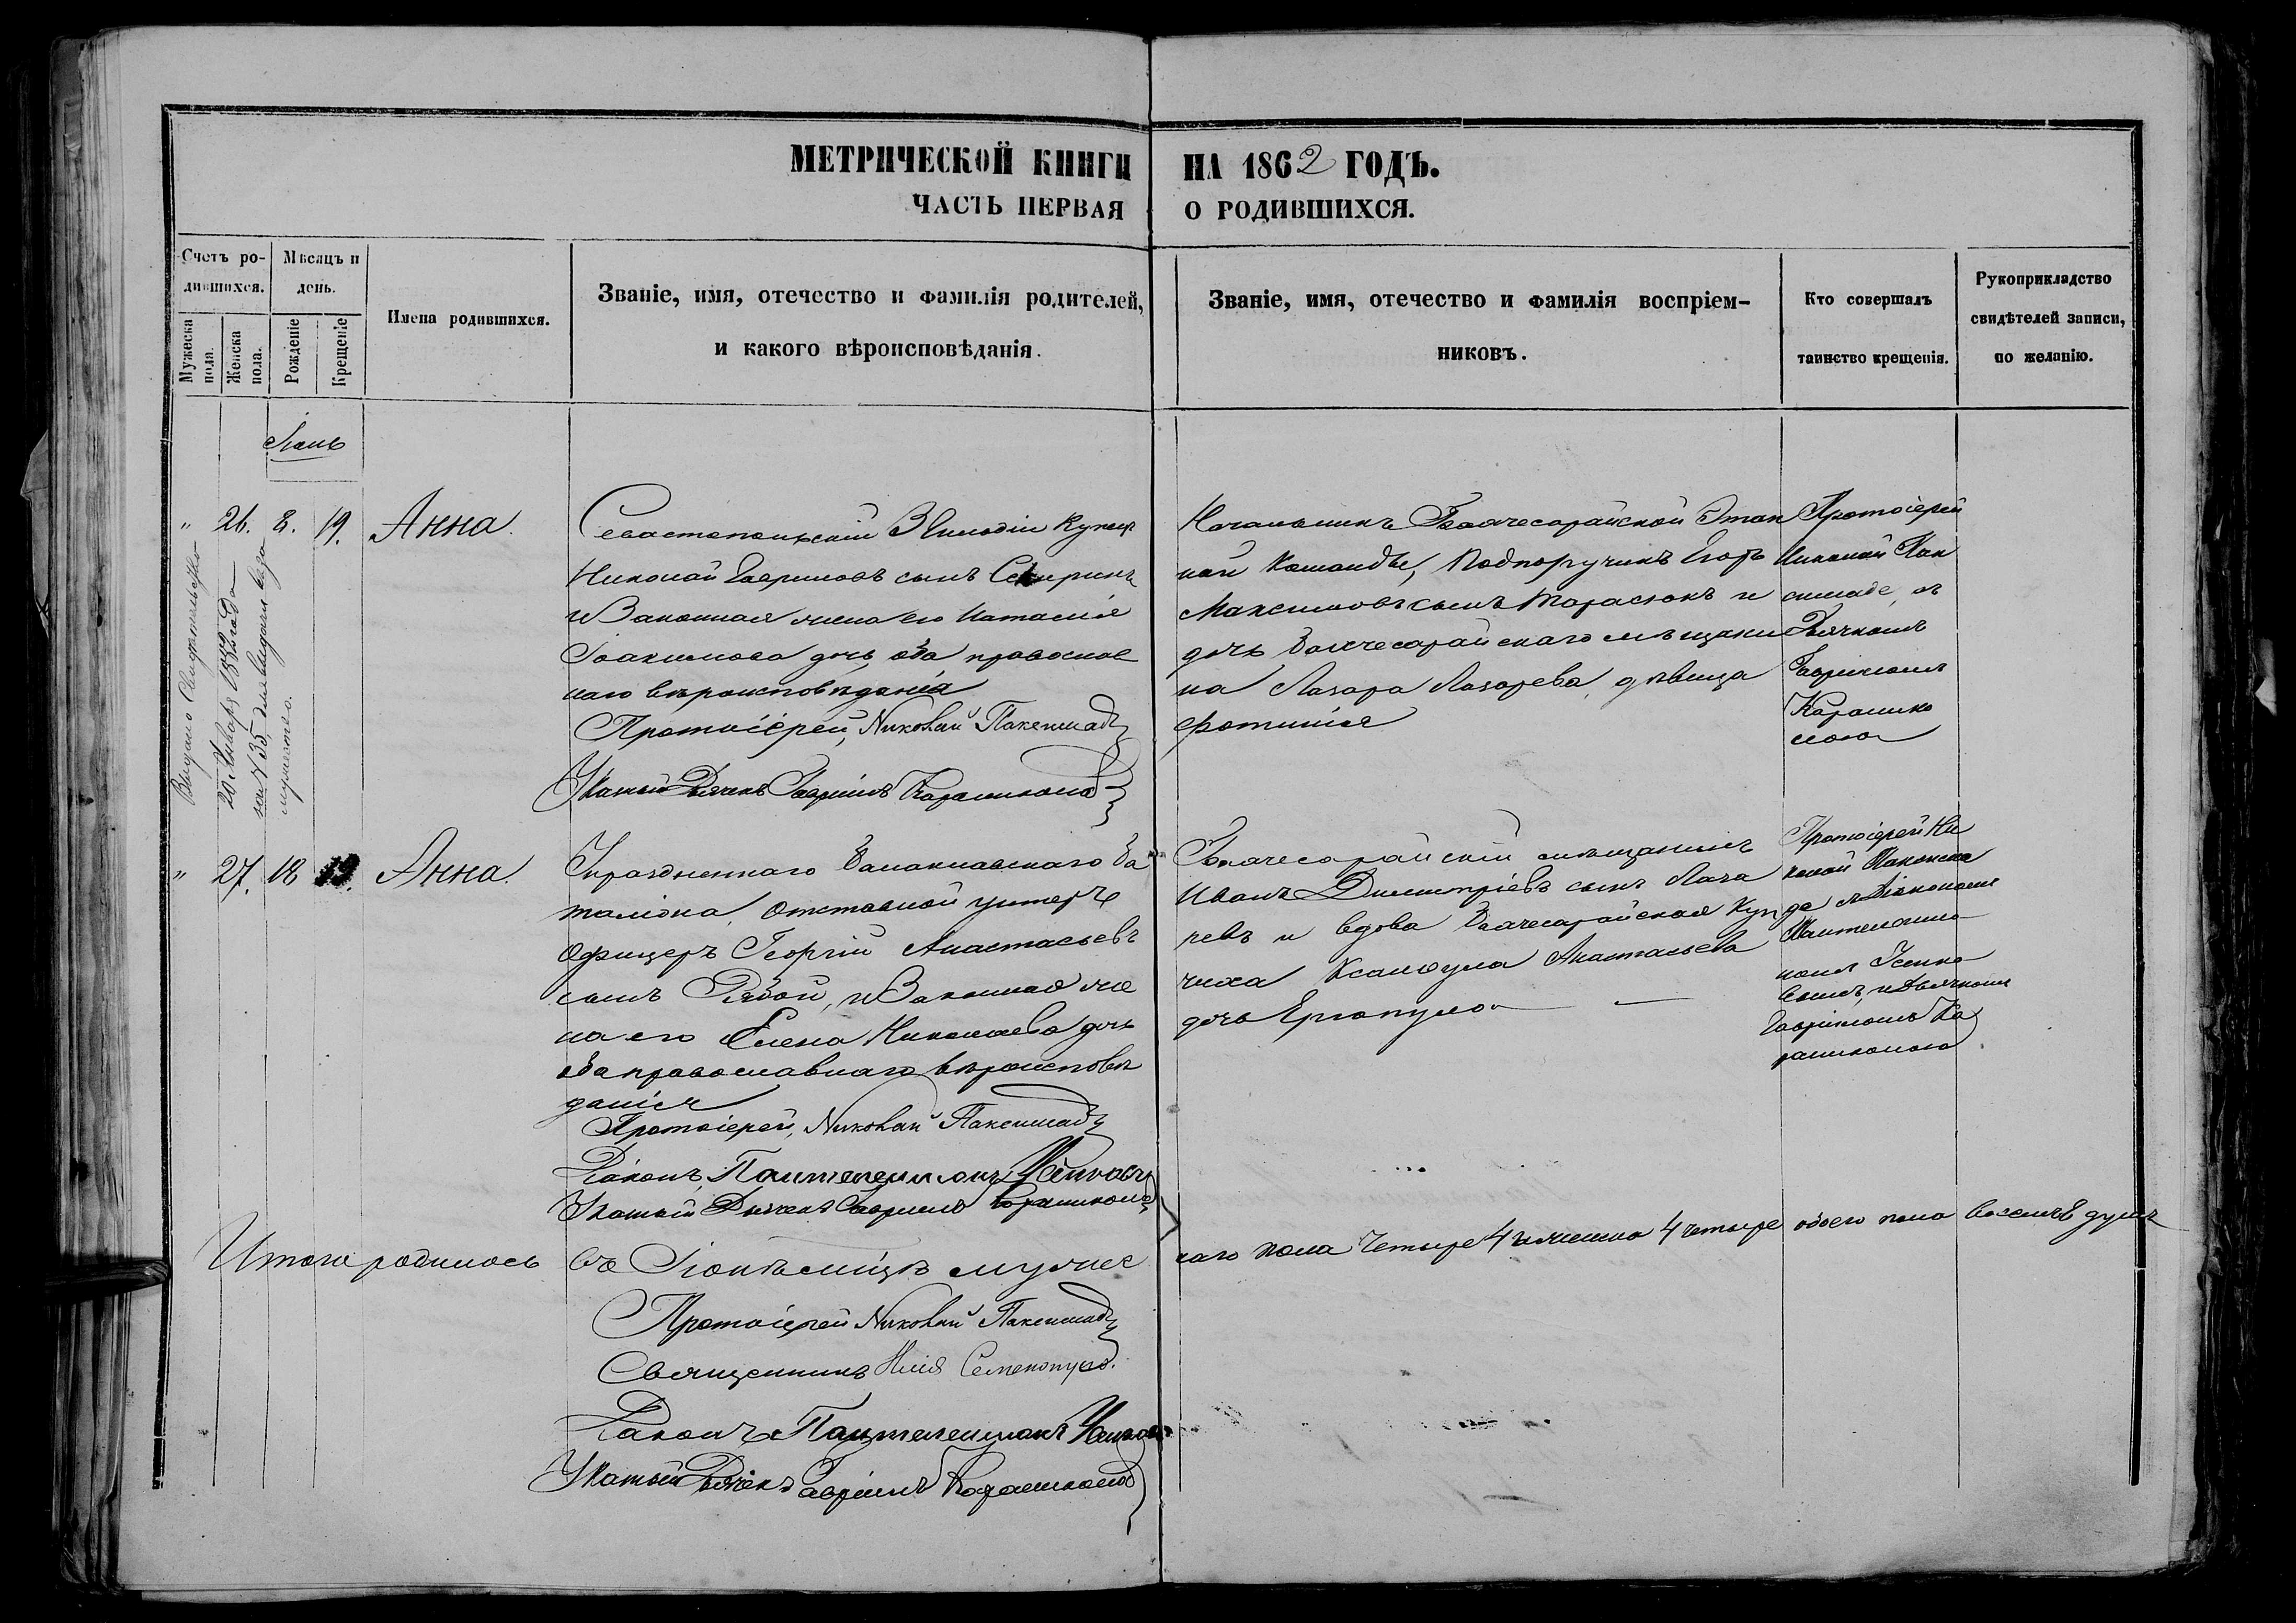 МЕТРИЧЕСКОЙ КНИГИ НА 1862 ГОДЪ.
ЧАСТЬ ПЕРВАЯ О РОДИВШИХСЯ.
Счетъ ро-
дившихся.
Мужеска пола.
Женска пола.
Мѣсяцъ и
день.
Рожденіе
Крещеніе
Имена родившихся.
Званіе, имя, отечество и фамилія родителей,
и какого вѣроисповѣданія.
Званіе, имя, отечество и фамилія воспріем-
никовъ.
Кто совершалъ
таинство крещенія.
Рукоприкладство
свидѣтелей записи,
по желанію.
Выдано Свидѣтельство
20 Января
за N 35
" 26. 8. 19. Анна.
Севастопольскій 3 Гильдіи Купецъ
Николай Гавриловъ сынъ
и Законная жена его Наталія
Іоакимова дочь, оба православ
наго вѣроисповѣданія
Протоіерей, Николай Пакеншадъ
Указный Дьячекъ Гавріилъ
Начальникъ Бахчесарайской Этап
ной Команды, Подпоручикъ Егоръ
Максимовъ сынъ Тарасюкъ и
дочь Бахчесарайскаго мѣщани
на Лазаря Лазарева, дѣвица
Фотинія
Протоіерей
Николай Пак
Дьячкомъ
Гавріиломъ
" 27. 18 19. Анна.
Упраздненнаго Балаклавскаго Ба
таліона, Отставной унтеръ
Офицеръ Георгій Анастасьевъ
сынъ Рябой, и Законная же
на его Елена Николаева дочь
оба православнаго вѣроисповѣ
данія
Протоіерей, Николай Пакеншадъ
Діаконъ, Пантелеимонъ
Указный Дьячекъ Гавріилъ
Бахчесарайскій мѣщанинъ
Иванъ Димитріевъ сынъ Лаза
ревъ и вдова Бахчесарайская Куп
чиха Анастасьева
дочь
Протоіерей Ни
колай
и Дьячкомъ
Гавріиломъ Ка
Итого родилось въ Іюнѣ мѣсяцѣ мужес каго пола Четыре 4 и женска 4 четыре обоего пола восемь душъ
Протоіерей Николай Пакеншадъ
Священникъ Илія Семенопуло.
Діаконъ Пантелеимонъ
Указный Дьячекъ Гавріилъ